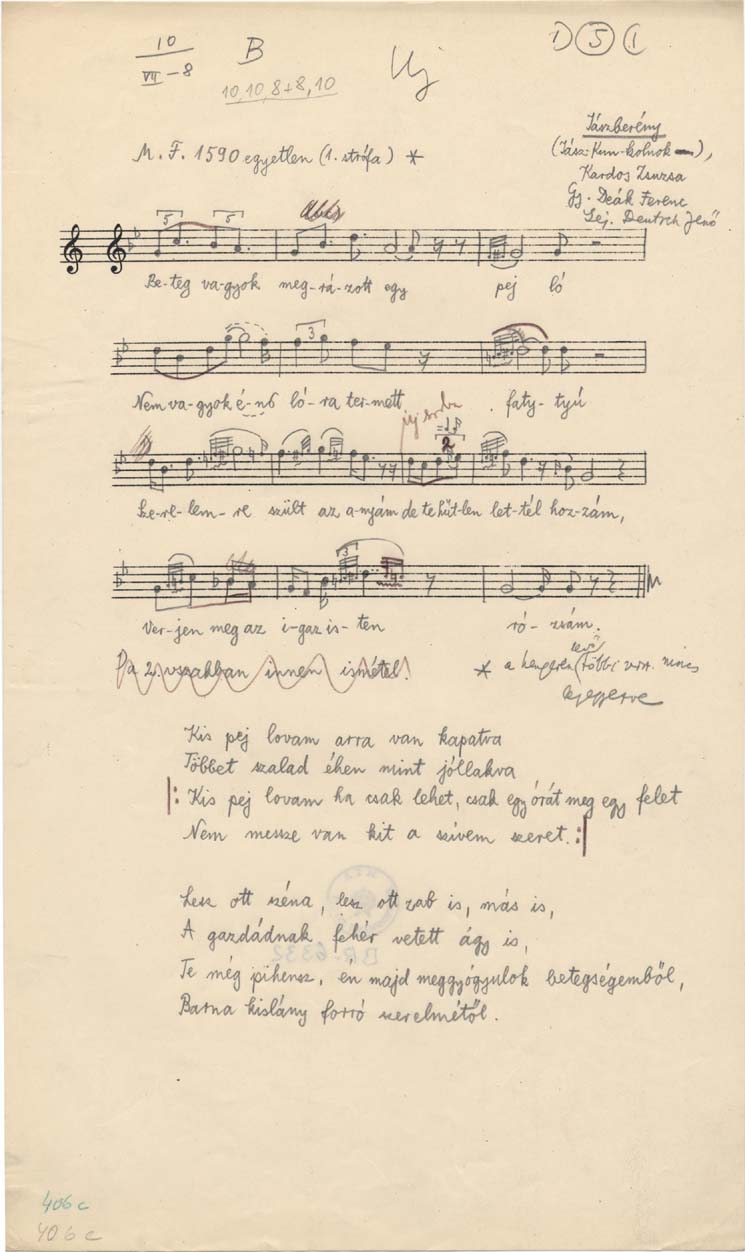 10
VII-8
B
Uj
1) 5 (1
10, 10, 8+8, 10
Jászberény
(Jász-Kun-Szolnok),
Kardos Zsuzsa
Gy. Deák Ferenc
Lej. Deutsch Jenő
M. F. 1590 egyetlen (1. strófa) *
5 5
Be-teg va-gyok meg-rá-zott egy pej ló
3
Nem va-gyok é-n ló-ra ter-mett faty-tyú
2
Sze-re-lem-re szült az a-nyám de te hüt-len let-tél hoz-zám,
3
Ver-jen meg az i-gaz is-ten ró-zsám.
a 2. vszakban innen ismétel!
* a hengeren levő többi vsz. nincs
lejegyezve
Kis pej lovam arra van kapatva
Többet szalad éhen mint jóllakva
|: Kis pej lovam ha csak lehet, csak egy órát meg egy felet
Nem messze van kit a szivem szeret. :|
Lesz ott széna, lesz ott zab is, más is,
A gazdádnak fehér vetett ágy is,
Te még pihensz, én majd meggyógyulok betegségemből,
Barna kislány forró szerelmétől.
406 c
406 c